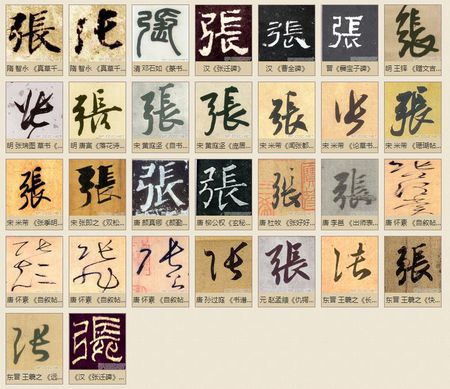 張 張 張 張 張 張 張
隋 智永 《真草千... 隋 智永 《真草千... 清 邓石如 《篆书... 汉 《张迁碑》 汉 《曹全碑》 晋 《爨宝子碑》 明 王铎 《赠文吉...
張 張 張 張 張 張 張
明 张瑞图 草书《... 明 唐寅 《落花诗... 宋 黄庭坚 《自书... 宋 黄庭坚 《庞居... 宋 米芾 《闻张都... 宋 米芾 《论草书... 宋 米芾 《珊瑚帖...
張 張 張 張 張 張 張
宋 米芾 《张季明... 宋 张即之 《双松... 唐 颜真卿 《颜勤... 唐 柳公权 《玄秘... 唐 杜牧 《张好好... 唐 李邕 《出师表... 唐 怀素 《自叙帖...
張 張 張 張 張 張 張
唐 怀素 《自叙帖... 唐 怀素 《自叙帖... 唐 怀素 《自叙帖... 唐 孙过庭 《书谱... 元 赵孟頫 《仇锷... 东晋 王羲之 《长... 东晋 王羲之 《快...
張 張
东晋 王羲之 《远... 《汉《张迁碑》...